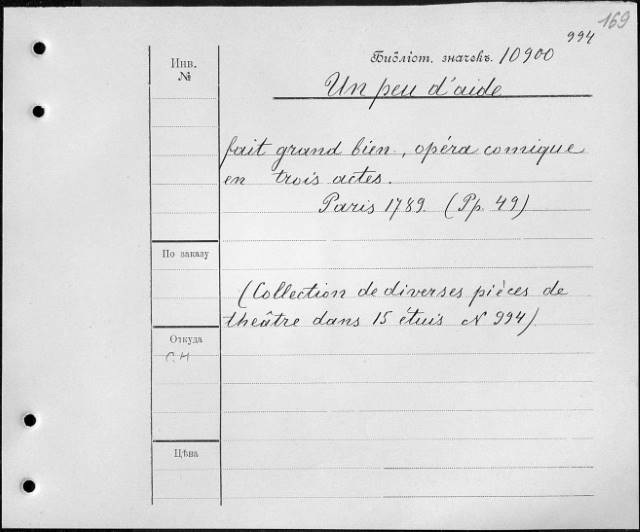 169
994
Инв.
№
Библіот. значекъ. 10900
Un peu d'aide
fait grand bien, opéra comique
en trois actes.
Paris 1789. (Pp. 49)
По заказу
(Collection de diverses pièces de
theâtre dans 15 étuis N 994)
Откуда
С.Н
Цѣна